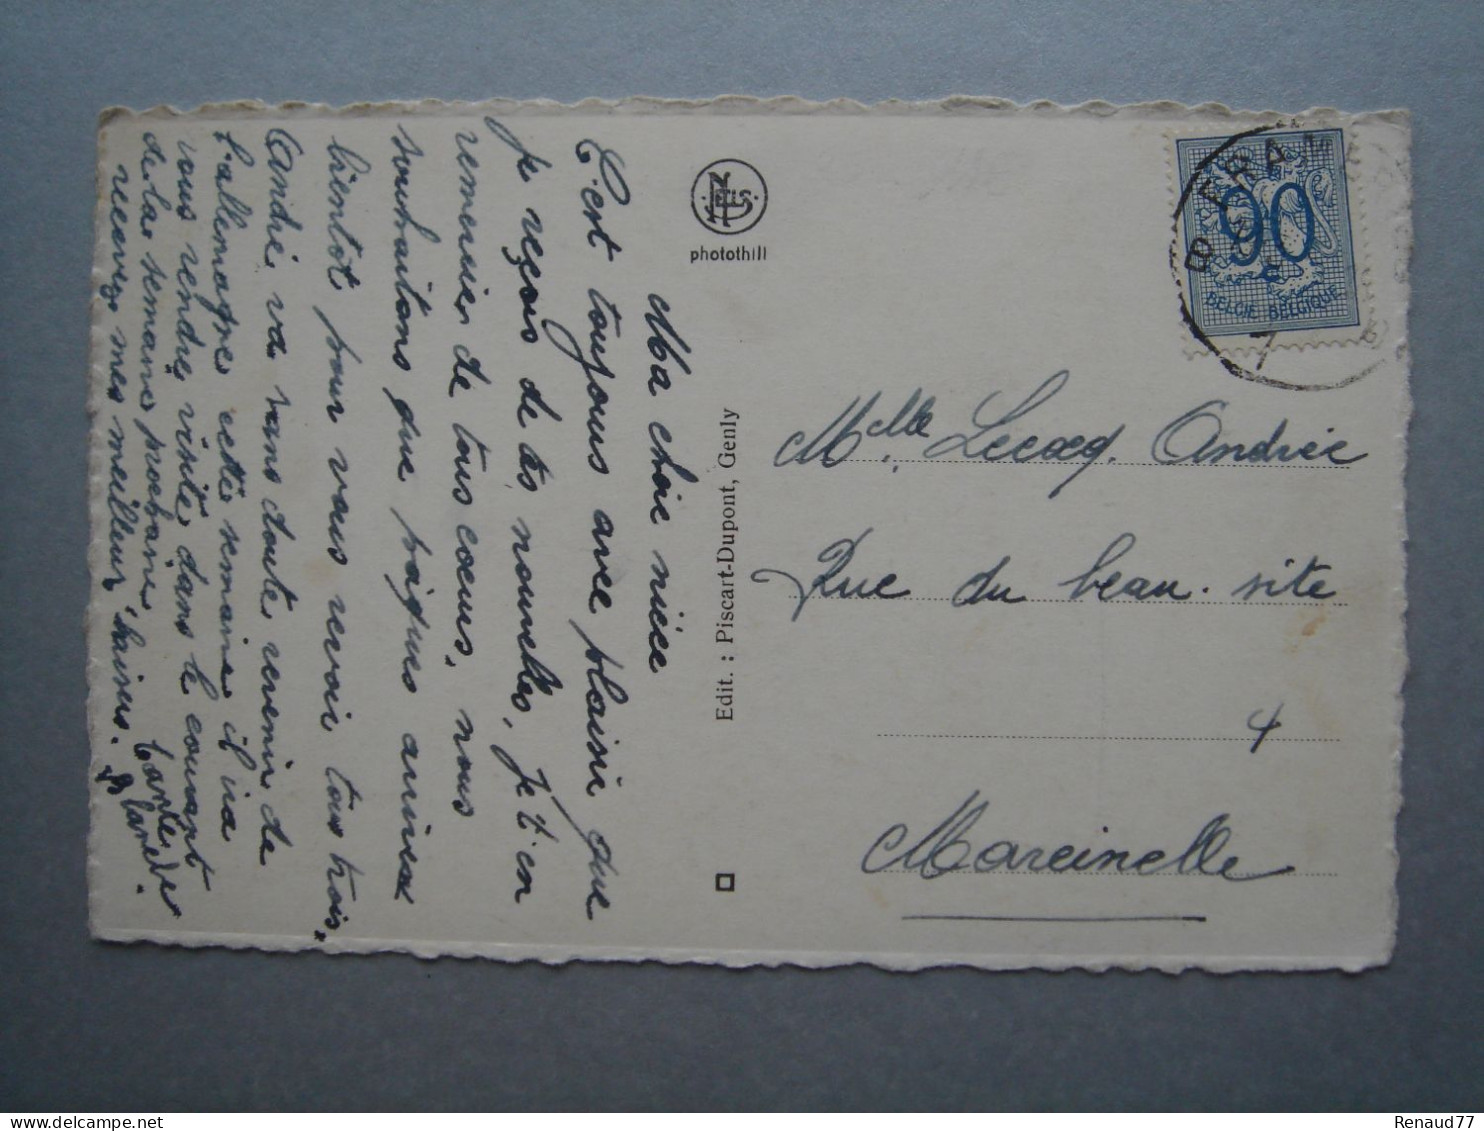 Ma chère nièce
C'est toujours avec plaisir que
je reçois de tes nouvelles, je t'en
remercier de tous coeurs, nous
souhaitons que pâques arrivent
bientôt pour vous revoir tous trois.
André va sans doute revenir de
l'allemagne cette semaine il ira
vous rendre visite dans le courant
de la semaine prochaine
recevez mes meilleur baisers.
tante de
Blanche.
NELS
photothill
Edit. : Piscart-Dupont, Genly
90
BELGIE BELGIQUE
B FRAM
7
Mlle Lecocq Andrée
Rue du beau-site
4
Marcinelle
Renaud77